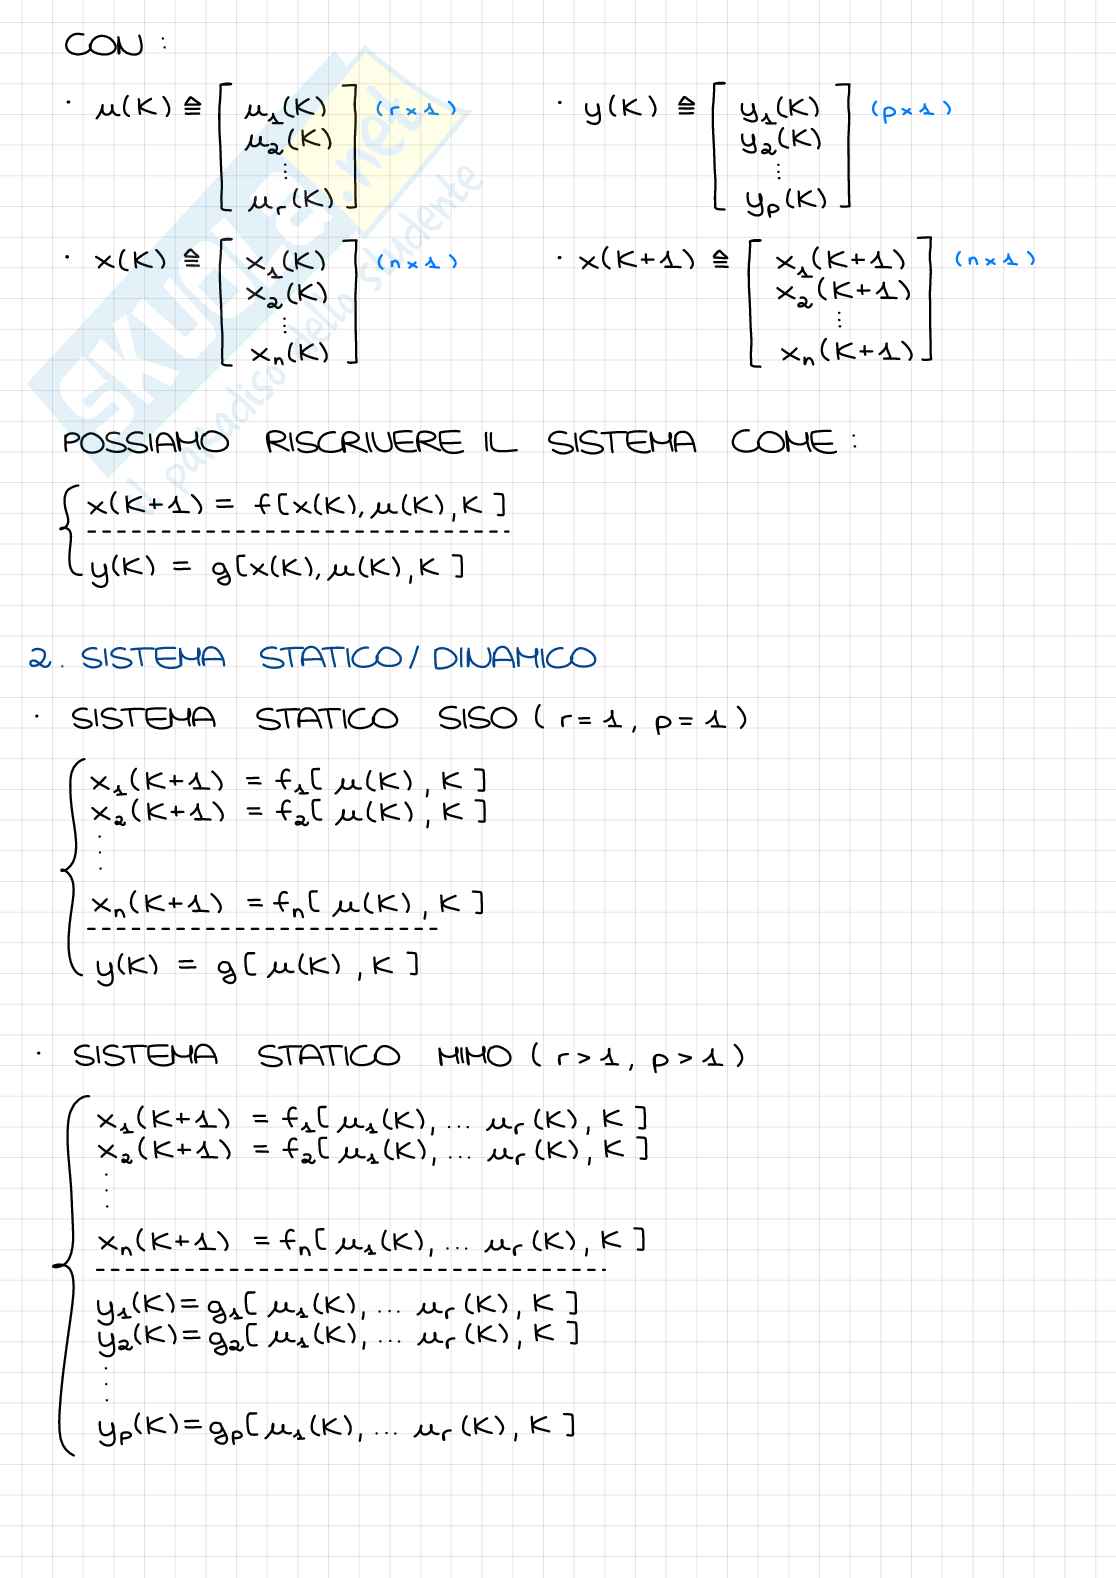 CON :
· u(K) ≙ [ u₁(K) u₂(K) ⋮ uᵣ(K) ] (r×1)
· y(K) ≙ [ y₁(K) y₂(K) ⋮ yₚ(K) ] (p×1)
· x(K) ≙ [ x₁(K) x₂(K) ⋮ xₙ(K) ] (n×1)
· x(K+1) ≙ [ x₁(K+1) x₂(K+1) ⋮ xₙ(K+1) ] (n×1)
SKUOLA.net
il paradiso dello studente
POSSIAMO RISCRIVERE IL SISTEMA COME :
x(K+1) = f[x(K), u(K), K ]
y(K) = g[x(K), u(K), K ]
2. SISTEMA STATICO/DINAMICO
· SISTEMA STATICO SISO ( r=1, p=1 )
x₁(K+1) = f₁[ u(K), K ]
x₂(K+1) = f₂[ u(K), K ]
⋮
xₙ(K+1) = fₙ[ u(K), K ]
y(K) = g[ u(K), K ]
· SISTEMA STATICO MIMO ( r>1, p>1 )
x₁(K+1) = f₁[ u₁(K), ... uᵣ(K), K ]
x₂(K+1) = f₂[ u₁(K), ... uᵣ(K), K ]
⋮
xₙ(K+1) = fₙ[ u₁(K), ... uᵣ(K), K ]
y₁(K)=g₁[ u₁(K), ... uᵣ(K), K ]
y₂(K)=g₂[ u₁(K), ... uᵣ(K), K ]
⋮
yₚ(K)=gₚ[ u₁(K), ... uᵣ(K), K ]